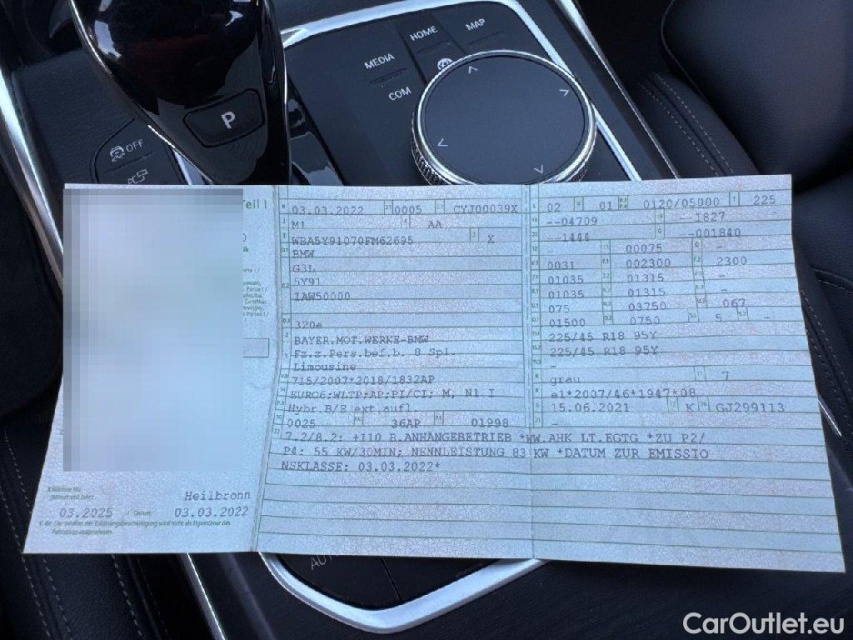 HOME
MAP
MEDIA
COM
P
OFF
03.03.2022 0005 CYJ00039X
M1 AA
WBA5Y91070FM62695 X
BMW
G3L
5Y91
IAW50000
320e
BAYER.MOT.WERKE-BMW
Fz.z.Pers.bef.b. 8 Spl.
Limousine
715/2007*2018/1832AP
EURO6;WLTP;AP;PI/CI; M, N1 I
Hybr.B/E ext.aufl.
0025 36AP 01998
02 01 0120/05000 225
--04709 --1827
--1444 -001840
00075 -
0031 002300 2300
01035 01315 -
01035 01315 -
075 03750 067
01500 0750 5 -
225/45 R18 95Y
225/45 R18 95Y
-
grau 7
e1*2007/46*1947*08
15.06.2021 K GJ299113
-
7.2/8.2: +110 B.ANHANGEBETRIEB *WW.AHK LT.EGTG *ZU P2/
P4: 55 KW/30MIN; NENNLEISTUNG 83 KW *DATUM ZUR EMISSIO
NSKLASSE: 03.03.2022*
Heilbronn
03.2025 03.03.2022
CarOutlet.eu